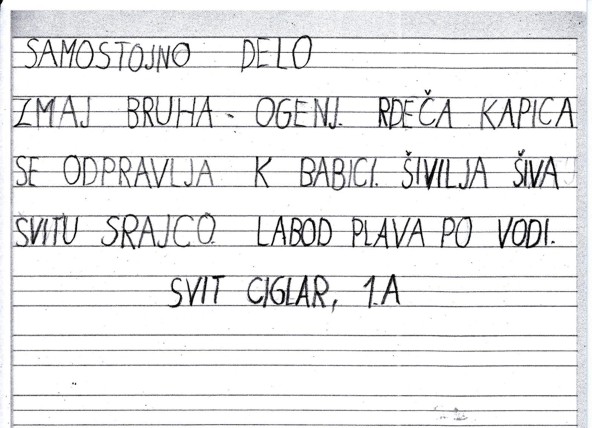 SAMOSTOJNO DELO
ZMAJ BRUHA - OGENJ. RDEČA KAPICA
SE ODPRAVLJA K BABICI. ŠIVILJA ŠIVA
SVITU SRAJCO. LABOD PLAVA PO VODI.
SVIT CIGLAR, 1.A